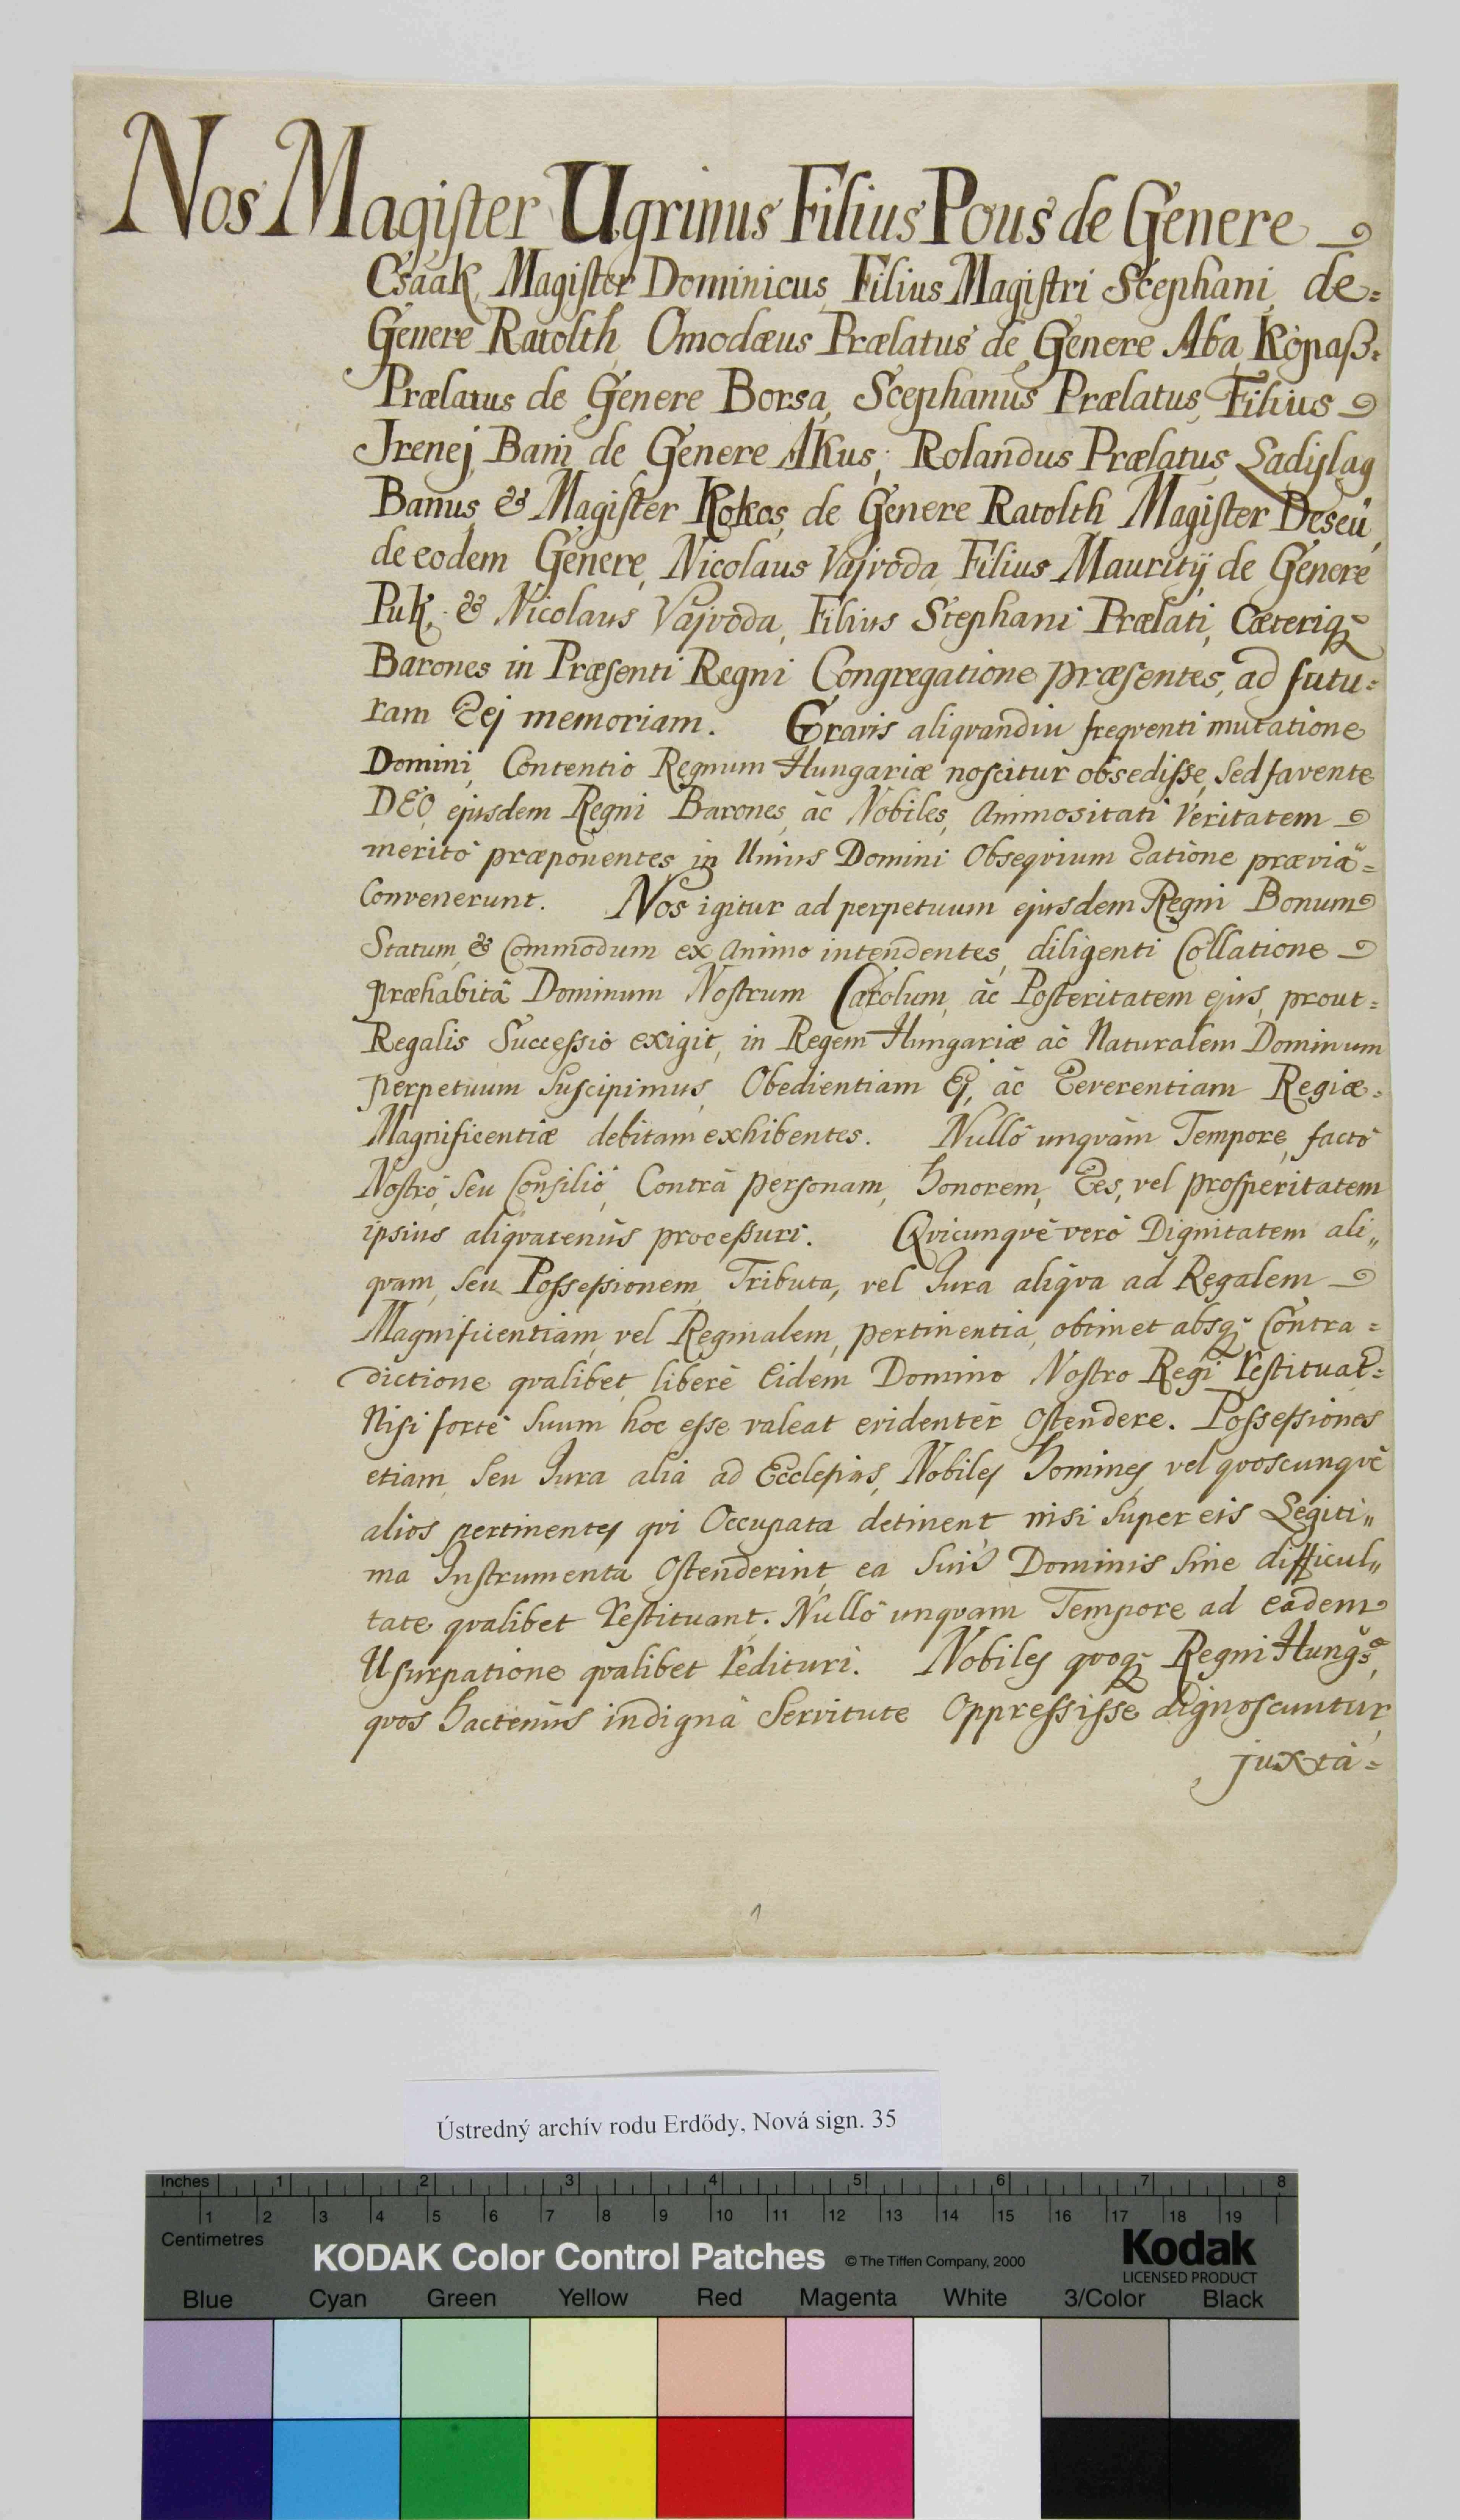 Nos Magister Ugrinus Filius Pous de Genere
Csaak, Magister Dominicus, Filius Magistri Stephani, de=
Genere Ratolth, Omodæus Prælatus de Genere Aba, Kopaß=
Prælatus de Genere Borsa, Stephanus Prælatus, Filius
Irenej Bani de Genere Akus; Rolandus Prælatus, Ladislag
Banus, & Magister Kokos, de Genere Ratolth Magister Deseü,
de eodem Genere, Nicolaus Vajvoda, Filius Maurityj de Genere
Puk, & Nicolaus Vajvoda, Filius Stephani Prælati, Cæteriq;
Barones in Præsenti Regni Congregatione præsentes, ad futu=
ram Rej memoriam. Gravis aliqvandiu freqventi mutatione
Domini, Contentio Regnum Hungariæ noscitur obsedisse, Sed favente
DEO, ejusdem Regni Barones, àc Nobiles, Animositati Veritatem
meritò præponentes, in Unius Domini Obseqvium Ratione præviâ=
Convenerunt. Nos igitur ad perpetuum ejusdem Regni Bonum
Statum, & Commodum ex Animo intendentes, diligenti Collatione
præhabitâ Dominum Nostrum Carolum, àc Posteritatem ejus, prout=
Regalis Successio exigit, in Regem Hungariæ àc Naturalem Dominum
perpetuum Suscipimus, Obedientiam Ej, àc Reverentiam Regiæ=
Magnificentiæ debitam exhibentes. Nullô unqvàm Tempore, factô
Nostrô, Seu Consiliô, Contrà personam, Honorem, Res, vel prosperitatem
ipsius aliqvatenùs processuri. Qvicunqvè verò Dignitatem ali„
qvam, Seu Possessionem, Tributa, vel Jura aliqva ad Regalem
Magnificentiam, vel Reginalem, pertinentia, obtinet absq; Contra=
dictione qvalibet, liberè Eidem Domino Nostro Regi restituat=
Nisi fortè Suum hoc esse valeat evidentèr Ostendere. Possessiones
etiam, Seu Jura alia ad Ecclesias, Nobiles Homines, vel qvoscunqvè
alios pertinentes qvi Occupata detinent, nisi Super eis Legiti„
ma Instrumenta Ostenderint, ea Suis Dominis Sine difficul„
tate qvalibet restituant. Nullô unqvam Tempore ad eadem
Usurpatione qvalibet rêdituri. Nobiles qvoq; Regni Hungæ,
qvos Hactenùs indignâ Servitute Oppressisse dignoscuntur,
juxtà=
1
Ústredný archív rodu Erdődy, Nová sign. 35
Inches 1 2 3 4 5 6 7 8
1 2 3 4 5 6 7 8 9 10 11 12 13 14 15 16 17 18 19
Centimetres
KODAK Color Control Patches © The Tiffen Company, 2000 Kodak
LICENSED PRODUCT
Blue Cyan Green Yellow Red Magenta White 3/Color Black